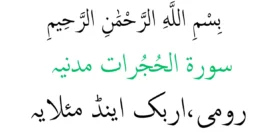 بِسْمِ اللَّهِ الرَّحْمَٰنِ الرَّحِيمِ
سورة الحُجُرات مدنیہ
رومی،اربک اینڈ مئلایہ